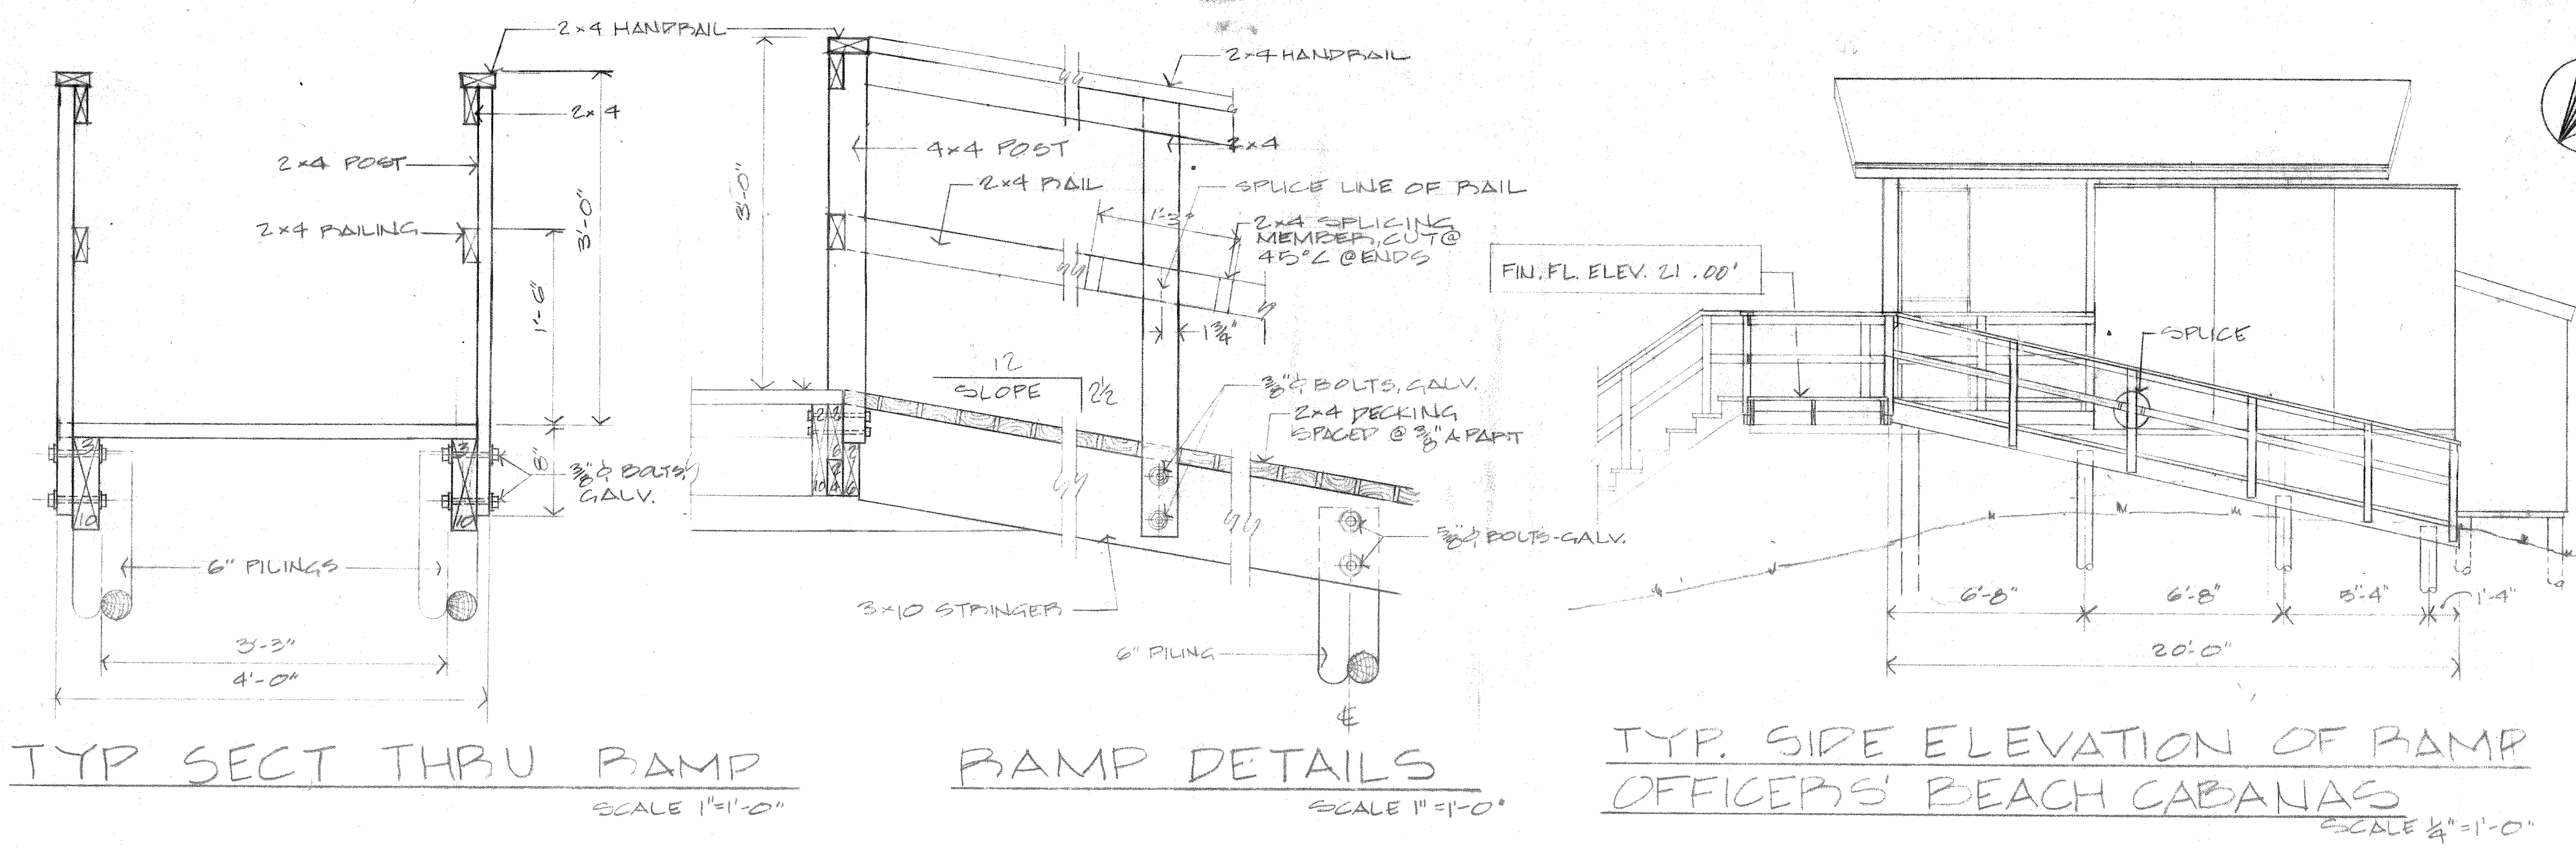 2x4 HANDRAIL
2x4
2x4 POST
2x4 RAILING
3'-0"
1'-6"
8"
3
10
3
10
3/8"ϕ BOLTS,
GALV.
6" PILINGS
3'-3"
4'-0"
TYP SECT THRU RAMP
SCALE 1"=1'-0"
2x4 HANDRAIL
3'-0"
4x4 POST
2x4
2x4 RAIL
SPLICE LINE OF RAIL
1'-3"
2x4 SPLICING
MEMBER, CUT @
45°∠ @ ENDS
1 3/4"
12
SLOPE
2 1/2
3/8"ϕ BOLTS, GALV.
2x4 DECKING
SPACED @ 3/8" APART
5/8"ϕ BOLTS-GALV.
3x10 STRINGER
6" PILING
℄
RAMP DETAILS
SCALE 1"=1'-0"
FIN. FL. ELEV. 21.00'
SPLICE
6'-8"
6'-8"
5'-4"
1'-4"
20'-0"
TYP. SIDE ELEVATION OF RAMP
OFFICERS' BEACH CABANAS
SCALE 1/4"=1'-0"